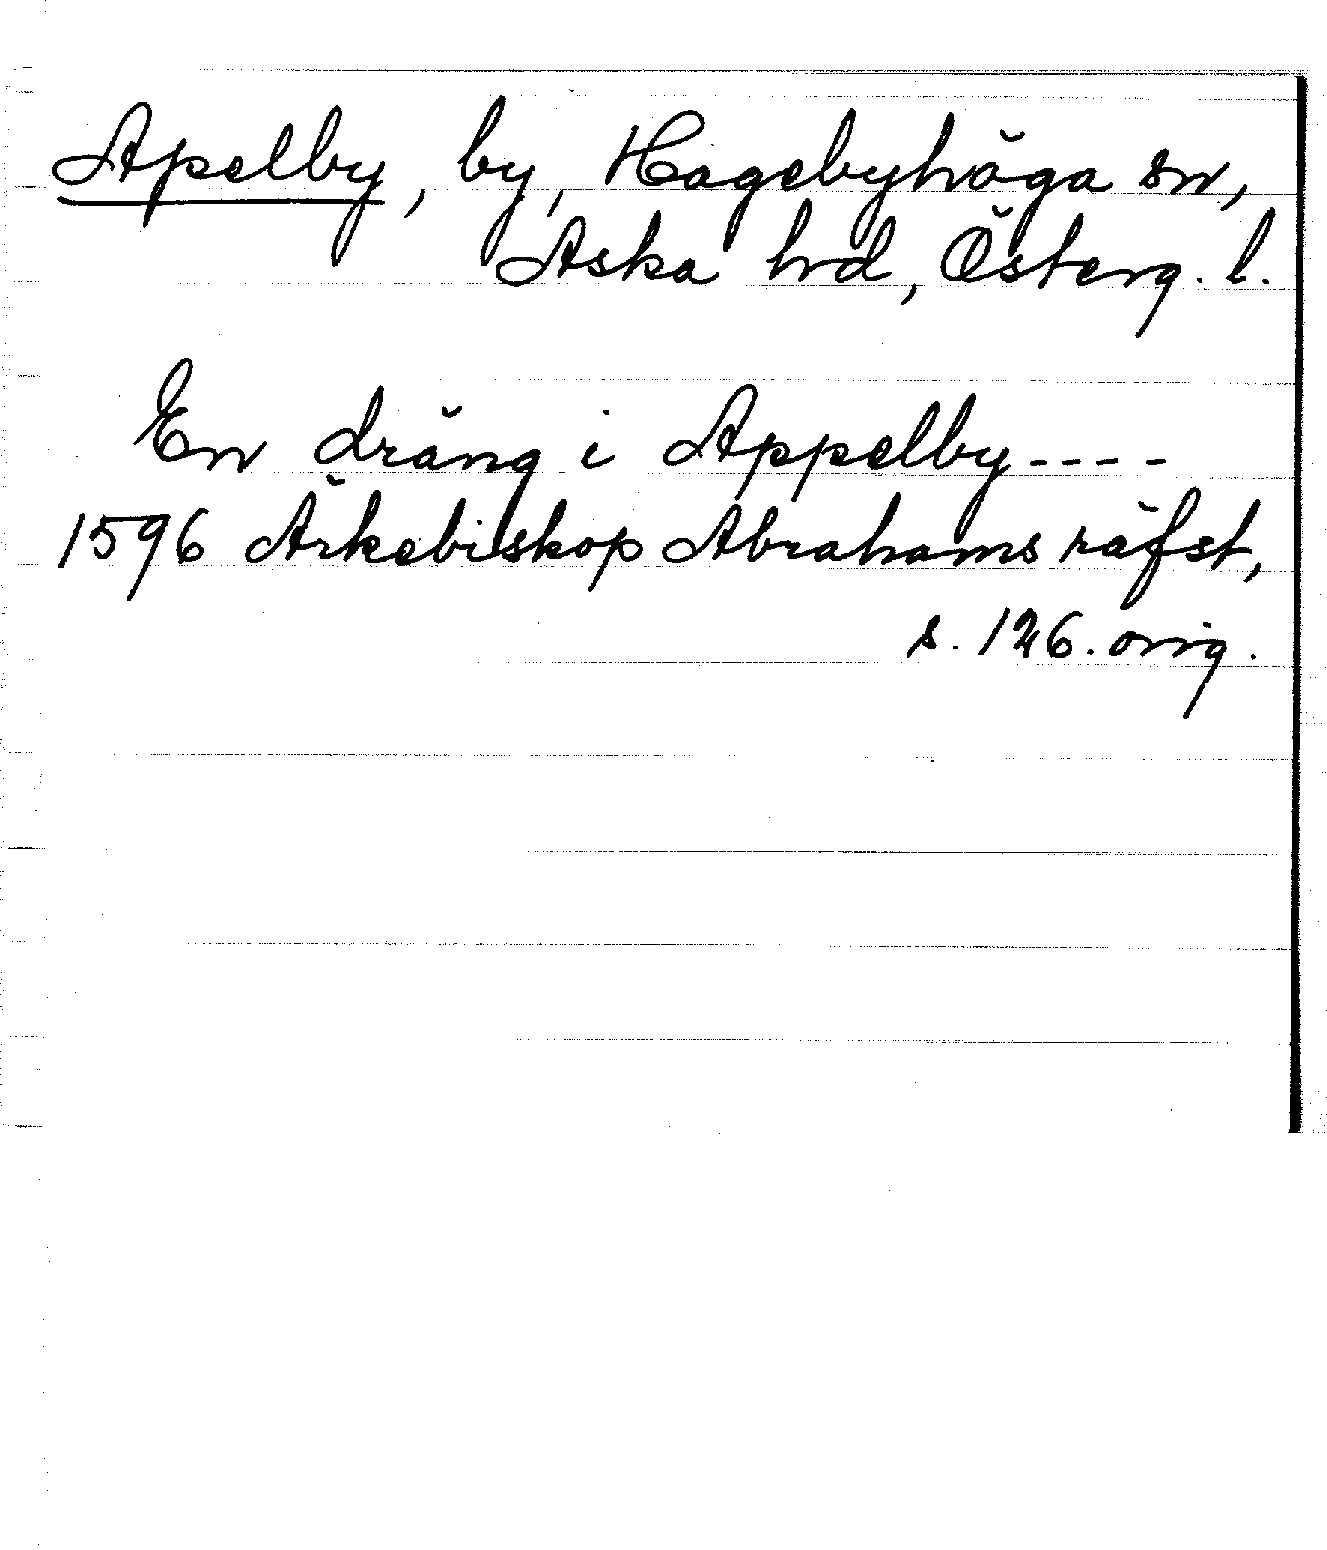 Apelby, by, Hagebyhöga sn,
Aska hrd, Österg. l.
En dräng i Appelby----
1596 Ärkebiskop Abrahams räfst,
s. 126. orig.